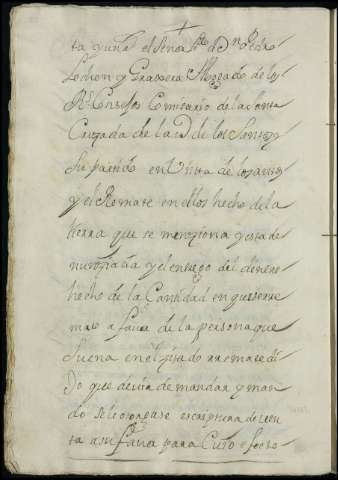 ta y una el Señor Dn Pedro
y Abogado de los
Rs Consejos Comisario de la Santa
Cruzada de la de los Santos y
Su partido en Vista de los autos
y el Remate en ellos hecho de la
tierra que se menziona y esta de
nunziada y el entrego del dinero
hecho de la Cantidad en que se rre
mato a favor de la persona que
suena en el zitado rremate di
Jo que devia de mandar y man
do se le otorgase escriptura de ven
ta a su favor para Cuio efecto